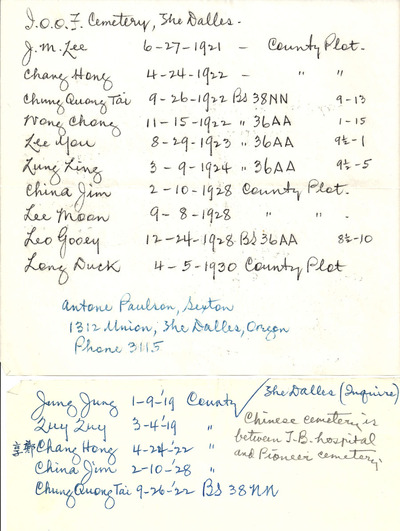 I.O.O.F. Cemetery, The Dalles.
J.M. Lee 6-27-1921 - County Plot.
Chang Hong 4-24-1922 - " "
Chung Quong Tai 9-26-1922 BS 38NN 9-13
Wong Chong 11-15-1922 " 36AA 1-15
Lee You 8-29-1923 " 36AA 9½-1
Lung Ling 3-9-1924 " 36AA 9½-5
China Jim 2-10-1928 County Plot.
Lee Moon 9-8-1928 " " -
Leo Gooey 12-24-1928 BS 36AA 8½-10
Long Duck 4-5-1930 County Plot
Antone Paulson, Sexton
1312 Union, The Dalles, Oregon
Phone 3115
The Dalles (Inquire)
Jung Jung 1-9-'19 County
Quy Quy 3-4-'19 "
Chang Hong 4-24-'22 "
China Jim 2-10-'28 "
Chung Quong Tai 9-26-'22 BS 38NN
Chinese cemetery is
between T.B. hospital
and Pioneer cemetery